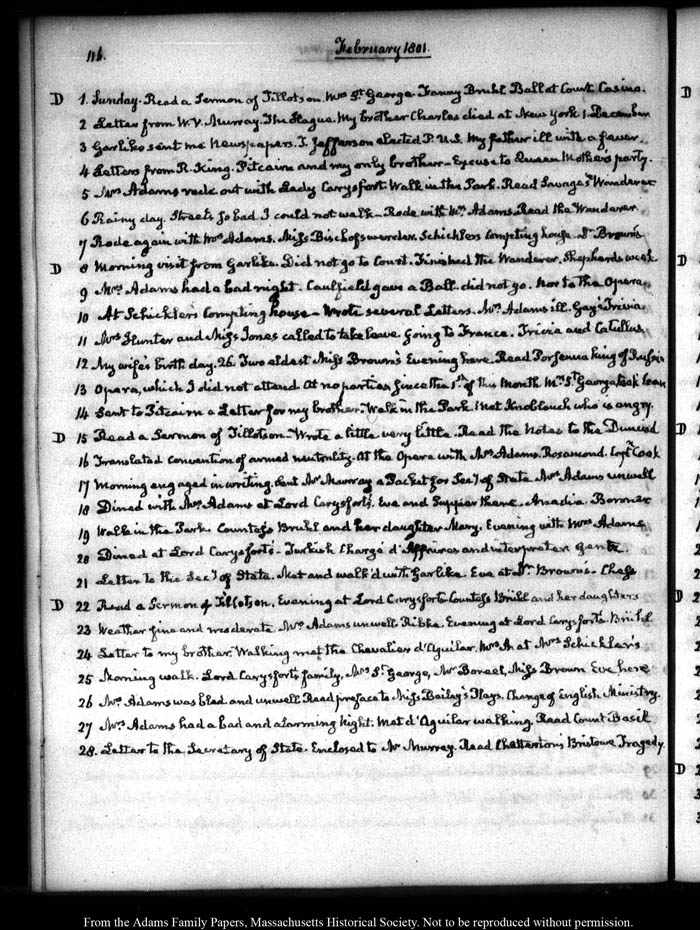 116.
February 1801.
D 1. Sunday. Read a Sermon of Tillotson. Mrs St. George. Fanny Bruhl Ball at Court. Casino.
2 Letter from W. V. Murray. The Hague. My brother Charles died at New York 1. December
3 Garlike sent me Newspapers. T. Jefferson elected P. U.S. My father ill with a fever.
4 Letters from R. King. Pitcairn and my only brother. Excuse to Queen Mother's party.
5 Mrs Adams rode out with Lady Carysfort. Walk in the Park. Read Savage's Wanderer
6 Rainy day. Streets so bad I could not walk. Rode with Mrs Adams. Read the Wanderer.
7 Rode again with Mrs Adams. Miss Bischofswerder. Schickler's Compting house. Dr Brown's
D 8 Morning visit from Garlike. Did not go to Court. Finished the Wanderer. Shepherds week
9 Mrs Adams had a bad night. Caulfield gave a Ball. did not go. Nor to the Opera
10 At Schickler's Compting house. Wrote several Letters. Mrs Adams ill. Gay's Trivia
11 Mrs Hunter and Miss Jones called to take leave going to France. Trivia and Catullus
12 My wife's birth day. 26. Two eldest Miss Brown's Evening here. Read Porsenna King of Russia
13 Opera, which I did not attend. At no parties since the 1st of this Month. Mrs St. George took leave
14 Sent to Pitcairn a Letter for my brother. Walk in the Park. Met Knoblauch who is angry.
D 15 Read a Sermon of Tillotson. Wrote a little very little. Read the Notes to the Dunciad
16 Translated Convention of armed neutrality. At the Opera with Mrs Adams. Rosamond. Capt. Cook
17 Morning engaged in writing. Sent Mr Murray a Packet for Secy of State. Mrs Adams unwell
18 Dined with Mrs Adams at Lord Carysfort's. Eve and Supper there. Arcadia. Boronet
19 Walk in the Park. Countess Bruhl and her daughter Mary. Evening with Mrs Adams
20 Dined at Lord Carysfort's. Turkish Chargé d'Affaires and interpreter
21 Letter to the Secy of State. Met and walk'd with Garlike. Eve at Dr Brown's. Chess
D 22 Read a Sermon of Tillotson. Evening at Lord Carysfort's Countess Brühl and her daughters
23 Weather fine and moderate. Mrs Adams unwell. Ribke. Evening at Lord Carysfort's. Brühl
24 Letter to my brother. Walking met the Chevalier d'Aguilar. Mrs A at Mrs Schickler's
25 Morning walk. Lord Carysfort's family, Mrs St. George, Mr Boreel, Miss Brown Eve here
26 Mrs Adams was bled and unwell. Read preface to Miss Bailey's Plays. Change of English Ministry.
27 Mrs Adams had a bad and alarming Night. Met d'Aguilar walking. Read Count Basil
28. Letter to the Secretary of State. Enclosed to Mr Murray. Read Chatterton's Bristowe Tragedy.
D
D
D
D
D
From the Adams Family Papers, Massachusetts Historical Society. Not to be reproduced without permission.